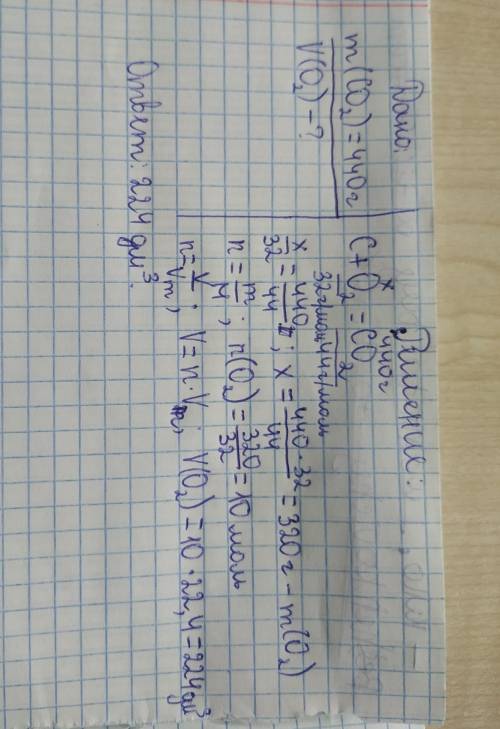 Дано:
m(CO₂) = 440г
V(O₂) - ?
Решение:
x 440г
C + O₂ = CO₂
32г/моль 44г/моль
x/32 = 440/44; x = 440·32/44 = 320г - m(O₂)
n = m/M; n(O₂) = 320/32 = 10 моль
n = V/Vm; V = n·Vm; V(O₂) = 10·22,4 = 224 дм³
Ответ: 224 дм³.